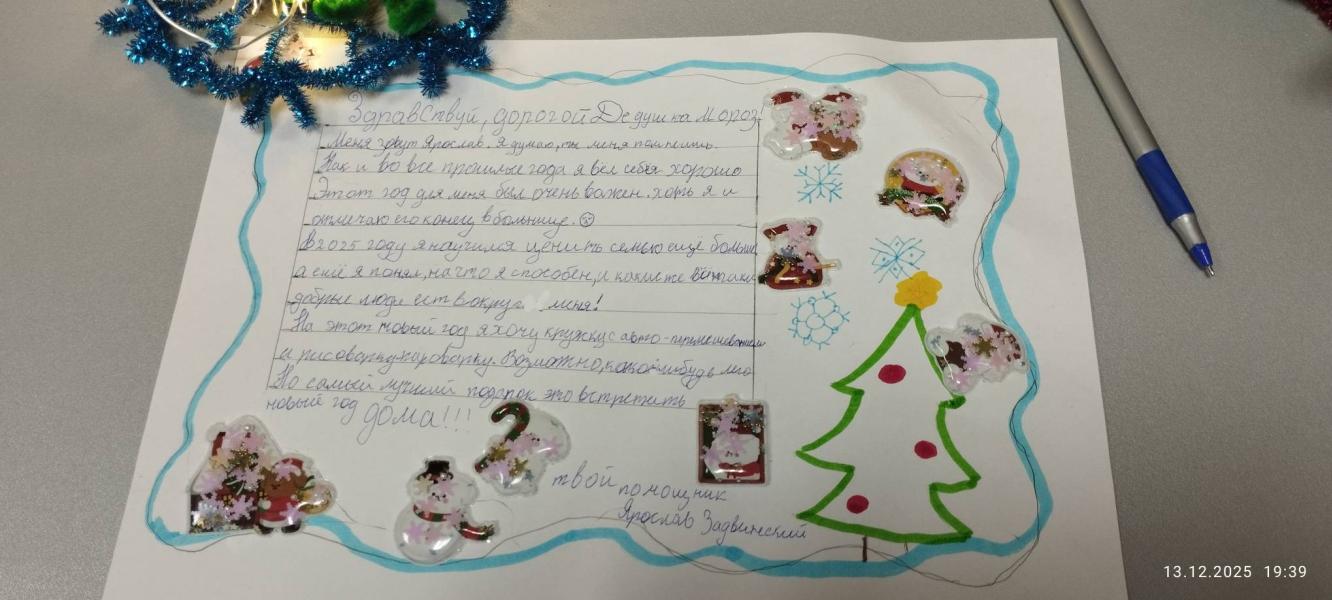 Здравствуй, дорогой Дедушка Мороз!
Меня зовут Ярослав. Я думаю, ты меня помнишь.
Как и во все прошлые года я вёл себя хорошо
Этот год для меня был очень важен, хоть я и
отмечаю его конец в больнице.
В 2025 году я научился ценить семью ещё больше
а ещё я понял, на что я способен, и какие же
добрые люди ест вокруг меня!
На этот новый год я хочу кружку с авто-перемешиванием
и рисоварку-пароварку. Возможно, какой-нибудь
Но самый лучший подарок это встретить
новый год дома!!!
твой помощник
Ярослав Задвинский
13.12.2025 19:39